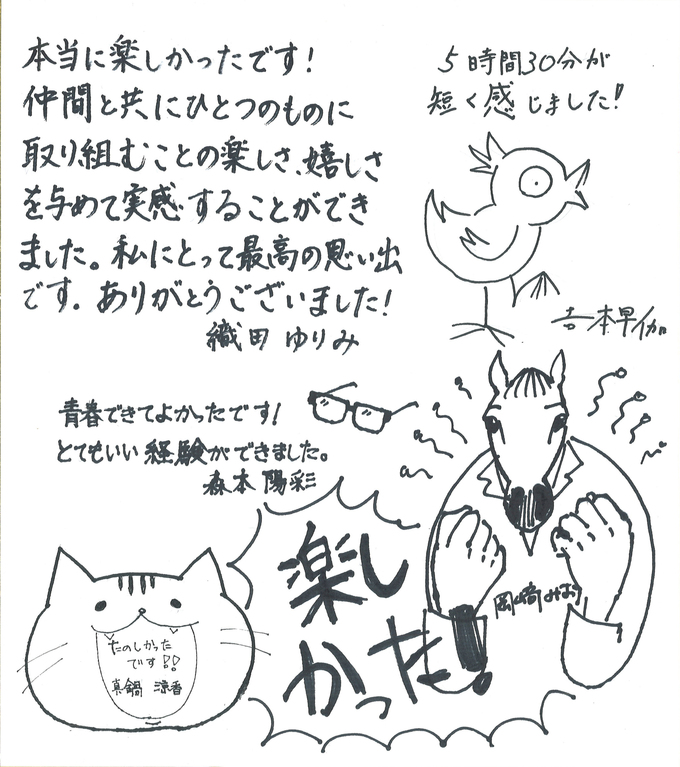 本当に楽しかったです！
仲間と共にひとつのものに
取り組むことの楽しさ、嬉しさ
を与めて実感することができ
ました。私にとって最高の思い出
です。ありがとうございました！
織田 ゆりみ
5時間30分が
短く感じました！
吉本早伽
青春できてよかったです！
とてもいい経験ができました。
森本 陽彩
楽し
かった！
岡崎みお
たのしかった
です！！
真鍋 涼香